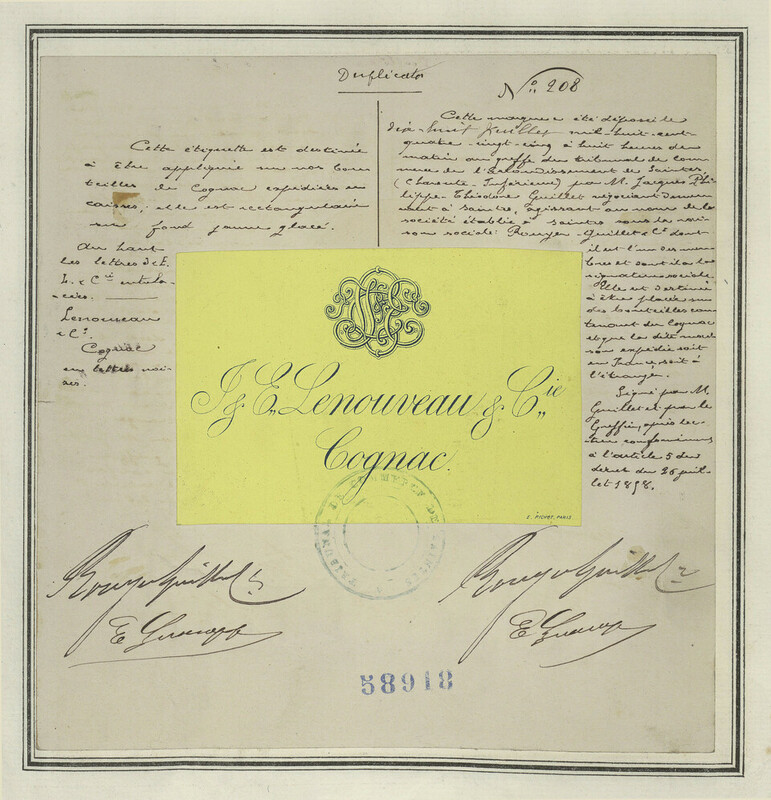 Duplicata
N° 208
Cette étiquette est destinée
à être appliquée sur nos bou
teilles de Cognac expédiées en
caisses; elle est rectangulaire
sur fond jaune glacé.
Au haut
les lettres J & E.
L. & Cie entrela-
cées.
Lenouveau
& Cie.
Cognac
en lettres noi-
res.
Cette marque a été déposée le
dix-huit Juillet mil-huit-cent-
quatre-vingt-cinq à huit heures du
matin au greffe du tribunal de com
merce de l'Arrondissement de Saintes
(Charente-Inférieure) par M. Jacques Phi
lippe-Théodore Guillet négociant demeu
rant à Saintes, agissant au nom de la
société établie à Saintes sous la rai-
son sociale: Rouyer-Guillet & Cie dont
il est l'un des mem
bres et dont il a la
signature sociale.
Elle est destinée
à être placée sur
des bouteilles con
tenant du Cognac
et que la dite mai
son expédie soit
en France, soit à
l'étranger.
Signé par M.
Guillet et par le
Greffier, après lec-
ture conformément
à l'article 5 du
décret du 26 juil-
let 1858.
J & E. Lenouveau & Cie
Cognac.
E. PICHOT, PARIS
TRIBUNAL DE COMMERCE DE SAINTES
Rouyer Guillet &
Rouyer Guillet &
58918